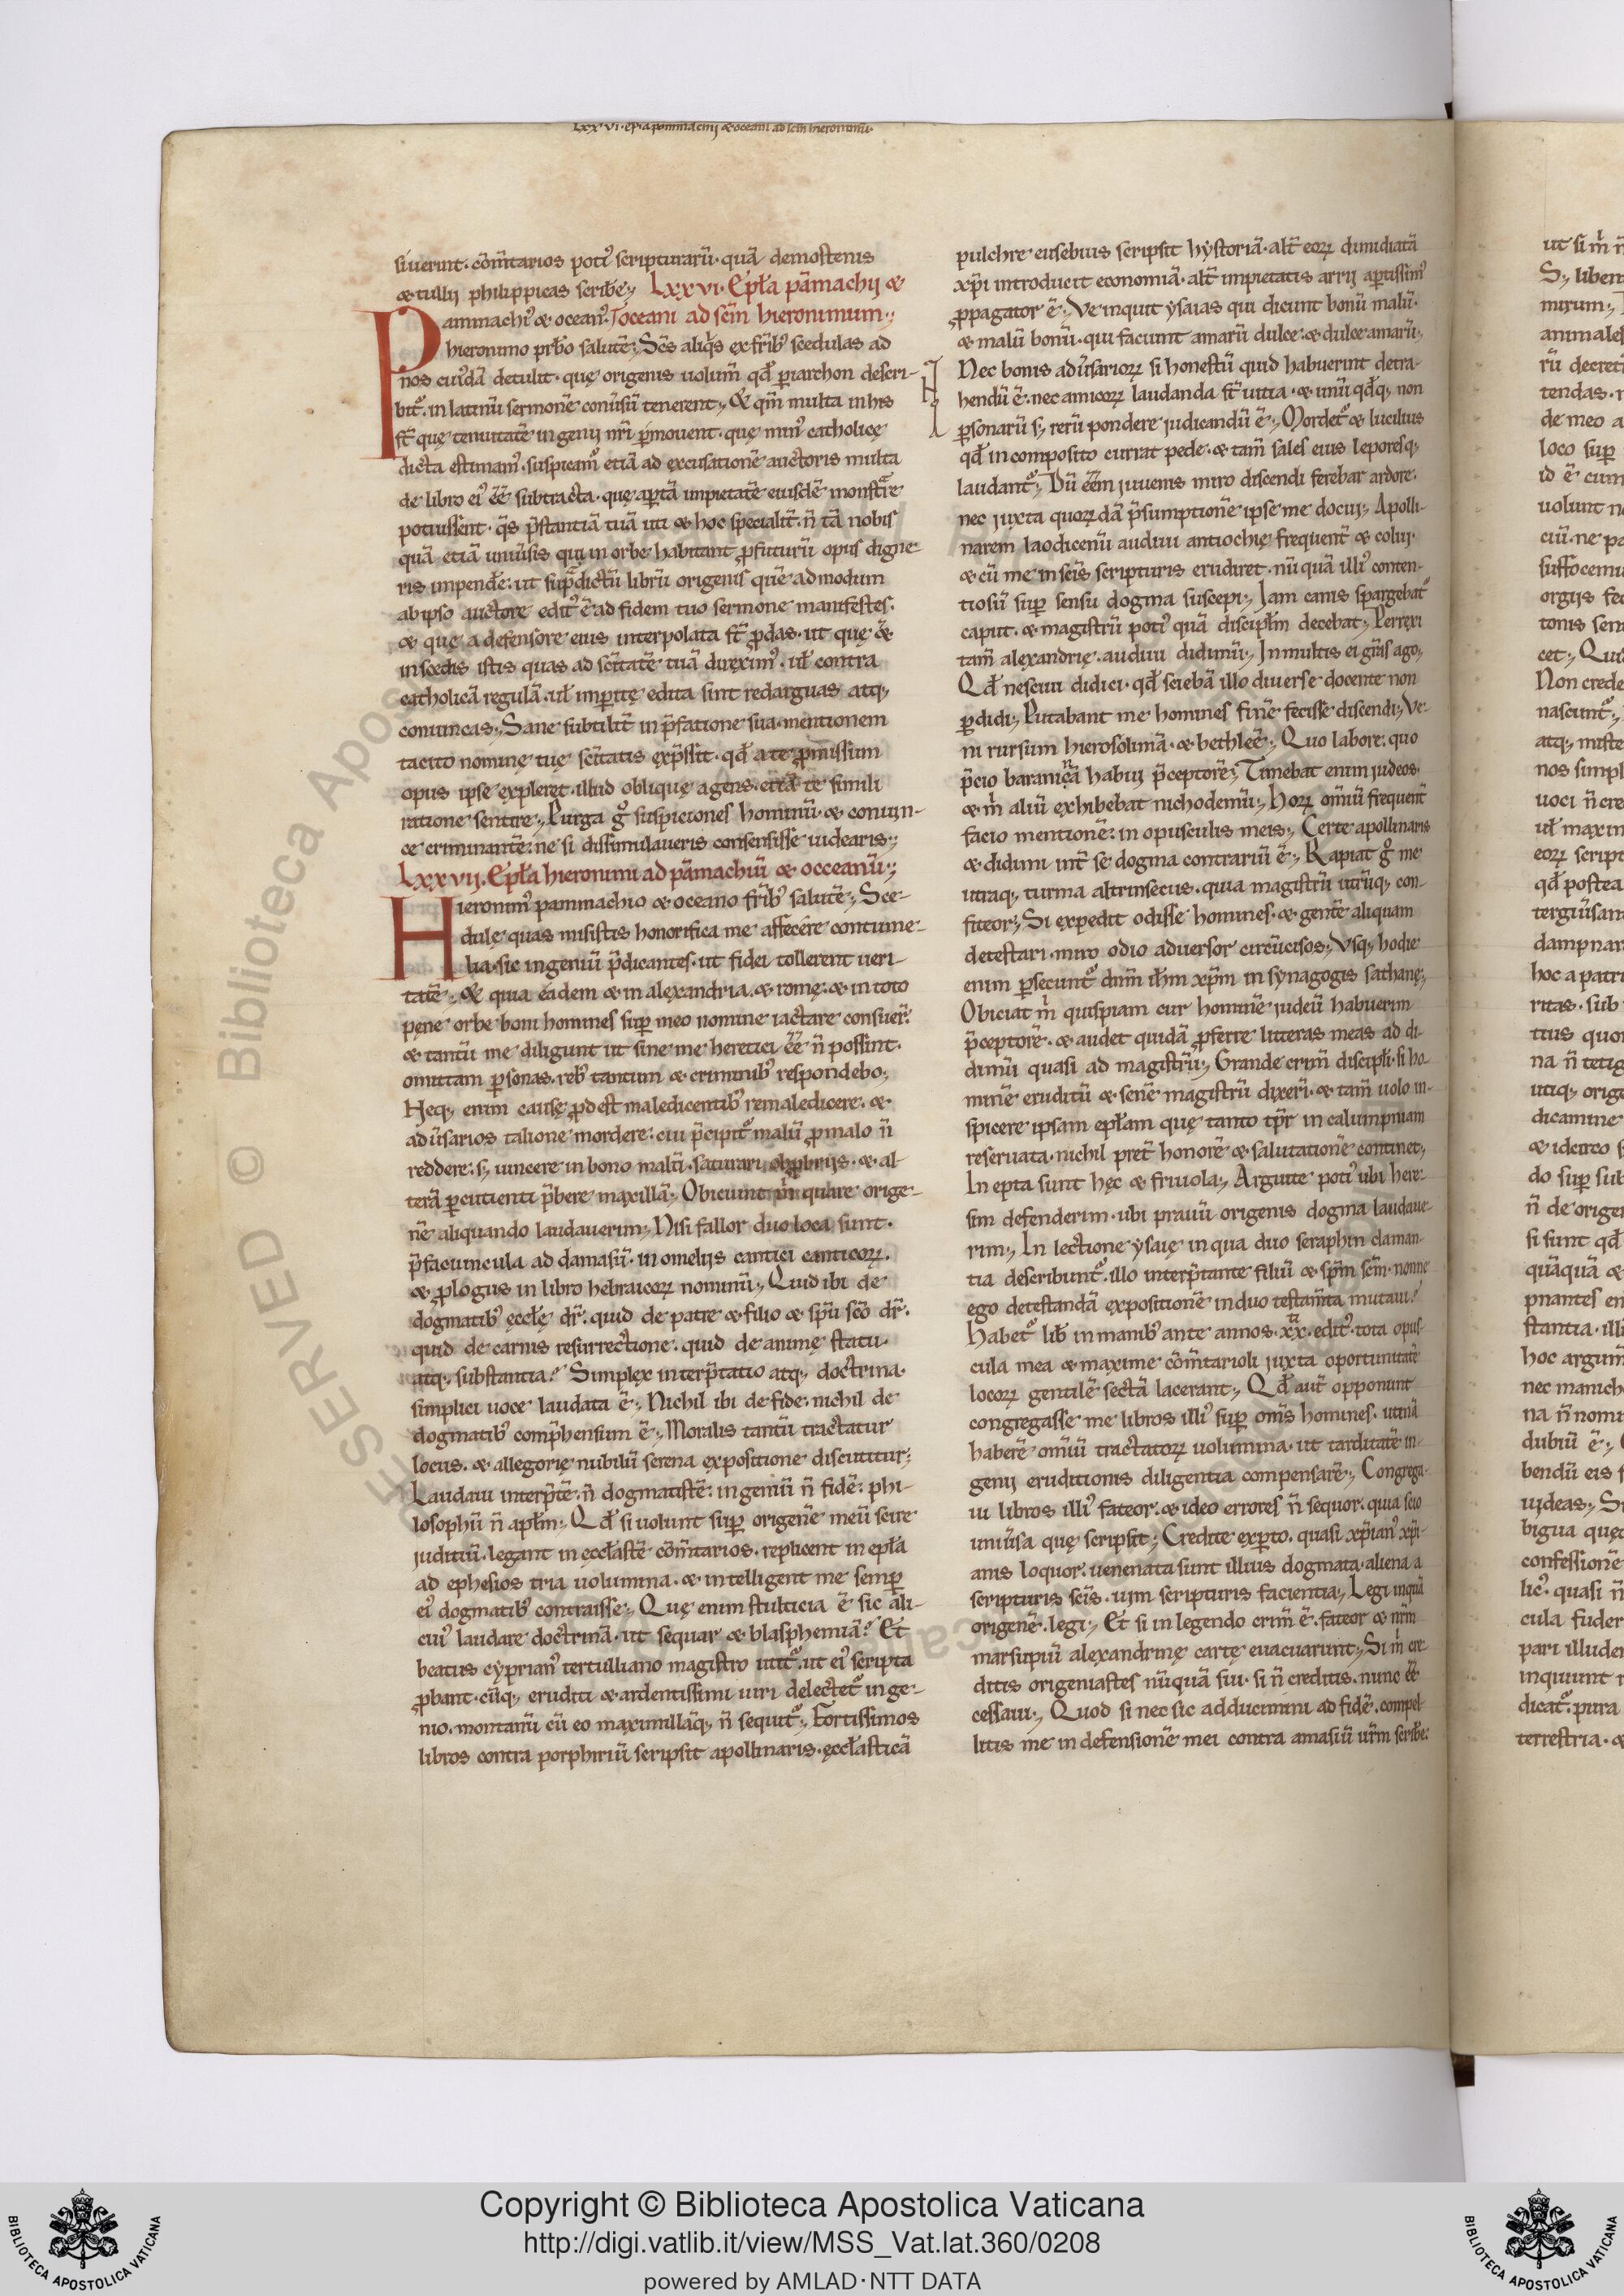 LXXVI. epla pammachij & oceani ad scm hieronimu.
siuerint. com̄tarios poti᷒ scripturarū. quā demostenis
& tullij philippicas scribe; LXXVI. Epl̄a pāmachij &
Pammachi᷒ & ocean᷒. oceani ad sc̄m hieronimum;
hieronimo prb̄o salutē; Sc̄s aliq̇s ex fr̄ib᷒ scedulas ad
nos cui᷒dā detulit. quę origenis uolum̄ qd̄ periarchon descri-
bit᷒. in latinū sermonē conūsū tenerent; & qm̄ multa in his
st̄ quę tenuitatē ingenij nr̄i pmouent. quę min᷒ catholicę
dicta estimam᷒. suspicam᷒ etiā ad excusationē auctoris multa
de libro ei᷒ ēē subtracta. quę aptā impietatē eiusdē monstrare
potuissent. q̄s p̄stantiā tuā uti & hoc specialit̄. n̄ tā nobis
quā etiā uniūsis qui in orbe habitant pfuturū opus digne-
ris impendē. ut sup̄dictū librū origenis quē ad modum
ab ipso auctore edit᷒ ē ad fidem tuo sermone manifestes.
& quę a defensore eius interpolata st̄ pdas. ut quę &
in scedis istis quas ad sc̄itatē tuā direxim᷒. ul̄ contra
catholicā regulā. ul̄ imperitę edita sint redarguas atq;
conuincas; Sane subtilit̄ in p̄fatione sua mentionem
tacito nominę tuę sc̄itatis exp̄ssit. qd̄ a te pmissum
opus ipse expleret. illud obliquę agens. etiā te simili
ratione sentire; Purga g̊ suspiciones hominū. & conuin-
ce criminantē. ne si dissimulaueris consensisse uidearis;
LXXVII. Epl̄a hieronimi ad pāmachiū & occeanū;
Hieronim᷒ pammachio & oceano fr̄ib᷒ salutē; Sce-
dulę quas misistis honorifica me affecere contume-
lia. sic ingeniū p̄dicantes. ut fidei tollerent ueri-
tatē; & quia eadem & in alexandria. & romę. & in toto
pęne orbe boni homines sup meo nomine iactare consuer̄.
& tantū me diligunt ut sine me heretici ēē n̄ possint.
omittam psonas. reb᷒ tantum & criminib᷒ respondebo;
Neq; enim causę pdest maledicentib᷒ remaledicere. &
adūsarios talione mordere. cui p̄cipit᷒ malū pmalo n̄
reddere. s; uincere in bono malū. saturari obpbrijs. & al-
terā pcutienti p̄bere maxillā; Obiciunt m̄ quare orige-
nē aliquando laudauerim; Nisi fallor duo loca sunt.
p̄faciuncula ad damasū. in omelijs cantici canticoꝝ.
& plogus in libro hebraicoꝝ nominū; Quid ibi de
dogmatib᷒ ęccl̄ę dr̄. quid de patre & filio & sp̄u sc̄o dr̄.
quid de carnis resurrectione. quid de animę statu.
atq; substantia? Simplex interp̄tatio atq; doctrina.
simplici uoce laudata ē; Nichil ibi de fide. nichil de
dogmatib᷒ comp̄hensum ē; Moralis tantū tractatur
locus. & allegorię nubilū serena expositione discutitur;
Laudaui interp̄tē. n̄ dogmatistē. ingeniū n̄ fidē. phi-
losophū n̄ apl̄m; Qd̄ si uolunt sup origenē meū scire
juditiū. legant in eccl̄astē com̄tarios. replicent in epl̄a
ad ephesios tria uolumina. & intelligent me semp
ei᷒ dogmatib᷒ contraisse; Quę enim stulticia ē sic ali-
cui᷒ laudare doctrinā. ut sequar & blasphemiā? Et
beatus cẏprian᷒ tertulliano magistro utit᷒. ut ei᷒ scripta
pbant. cūq; eruditi & ardentissimi uiri delectet᷒ inge-
nio. montanū cū eo maximillāq; n̄ sequit᷒; Fortissimos
libros contra porphiriū scripsit apollinaris. ęccl̄asticā
pulchre eusebius scripsit hẏstoriā. alt̄ eoꝝ dimidiatā
xp̄i introducit economiā. alt̄ impietatis arrij aptissim᷒
ppagator ē; Ve inquit ẏsaias qui dicunt bonū malū.
& malū bonū. qui faciunt amarū dulce. & dulce amarū;
Nec bonis adūsarioꝝ si honestū quid habuerint detra-
hendū ē. nec amicoꝝ laudanda st̄ uitia. & unū qd̄q; non
psonarū s; rerū pondere judicandū ē; Mordet᷒ & lucilius
qd̄ incomposito currat pede. & tam̄ sales eius leporesq;
laudant᷒; Dū ēēm juuenis miro discendi ferebar ardore.
nec juxta quoꝝdā p̄sumptionē ipse me docui; Apolli-
narem laodicenū audiui antiochię frequent̄ & colui.
& cū me in sc̄is scripturis erudiret. nūquā illi᷒ conten-
tiosū sup sensu dogma suscepi; Jam canis spargebat᷒
caput. & magistrū poti᷒ quā discipl̄m decebat; Perrexi
tam̄ alexandrię. audiui didimū; In multis ei gr̄as ago;
Qd̄ nesciui didici. qd̄ sciebā illo diuerse docente non
pdidi; Putabant me homines finē fecisse discendi; Ve-
ni rursum hierosolimā. & bethleē; Quo labore. quo
p̄cio baraniēā habui p̄ceptorē; Timebat enim judeos.
& m̄ aliū exhibebat nichodemū; Hoꝝ om̄iū frequent̄
facio mentionē. in opusculis meis; Certe apollinaris
& didimi int̄ se dogma contrariū ē; Rapiat g̊ me
utraq; turma altrinsecus. quia magistrū utrūq; con-
fiteor; Si expedit odisse homines. & gentē aliquam
detestari. miro odio aduersor circūcisos; Vsq; hodie
enim psecunt᷒ dn̄m ih̄m xp̄m in sẏnagogis sathanę;
Obiciat m̄ quispiam cur hominē judeū habuerim
p̄ceptorē. & audet quidā pferre litteras meas ad di-
dimū quasi ad magistrū; Grande crim̄ discipl̄i. si ho-
minē eruditū & senē magistrū dixerī. & tam̄ uolo in-
spicere ipsam epl̄am quę tanto tp̄r in calumpniam
reseruata. nichil pret̄ honorē & salutationē continet;
In epta sunt hęc & friuola; Arguite poti᷒ ubi here-
sim defenderim. ubi prauū origenis dogma laudaue-
rim; In lectione ẏsaię in qua duo seraphin claman-
tia describunt᷒. illo interp̄tante filiū & sp̄m sc̄m. nonne
ego detestandā expositionē in duo testam̄ta mutaui?
Habet᷒ lib̄ in manib᷒ ante annos .xx. edit᷒. tota opus-
cula mea & maxime com̄tarioli juxta oportunitatē
locoꝝ gentilē sectā lacerant; Qd̄ aut̄ opponunt
congregasse me libros illi᷒ sup om̄s homines. utinā
haberē om̄iū tractatoꝝ uolumina. ut tarditatē in-
genij eruditionis diligentia compensarē; Congrega-
ui libros illi᷒ fateor. & ideo errores n̄ sequor. quia scio
uniūsa quę scripsit; Credite experto. quasi xp̄ian᷒ xp̄i-
anis loquor. uenenata sunt illius dogmata. aliena a
scripturis sc̄is. uim scripturis facientia; Legi inquā
origenē. legi; Et si in legendo crim̄ ē. fateor & nr̄m
marsupiū alexandrinę cartę euacuarunt; Si m̄ cre-
ditis origeniastes nūquā fui. si n̄ creditis. nunc ēē
cessaui; Quod si nec sic adducimini ad fidē. compel-
litis me in defensionē mei contra amasiū ur̄m scribe.
Copyright © Biblioteca Apostolica Vaticana
http://digi.vatlib.it/view/MSS_Vat.lat.360/0208
powered by AMLAD·NTT DATA
BIBLIOTECA APOSTOLICA VATICANA
BIBLIOTECA APOSTOLICA VATICANA